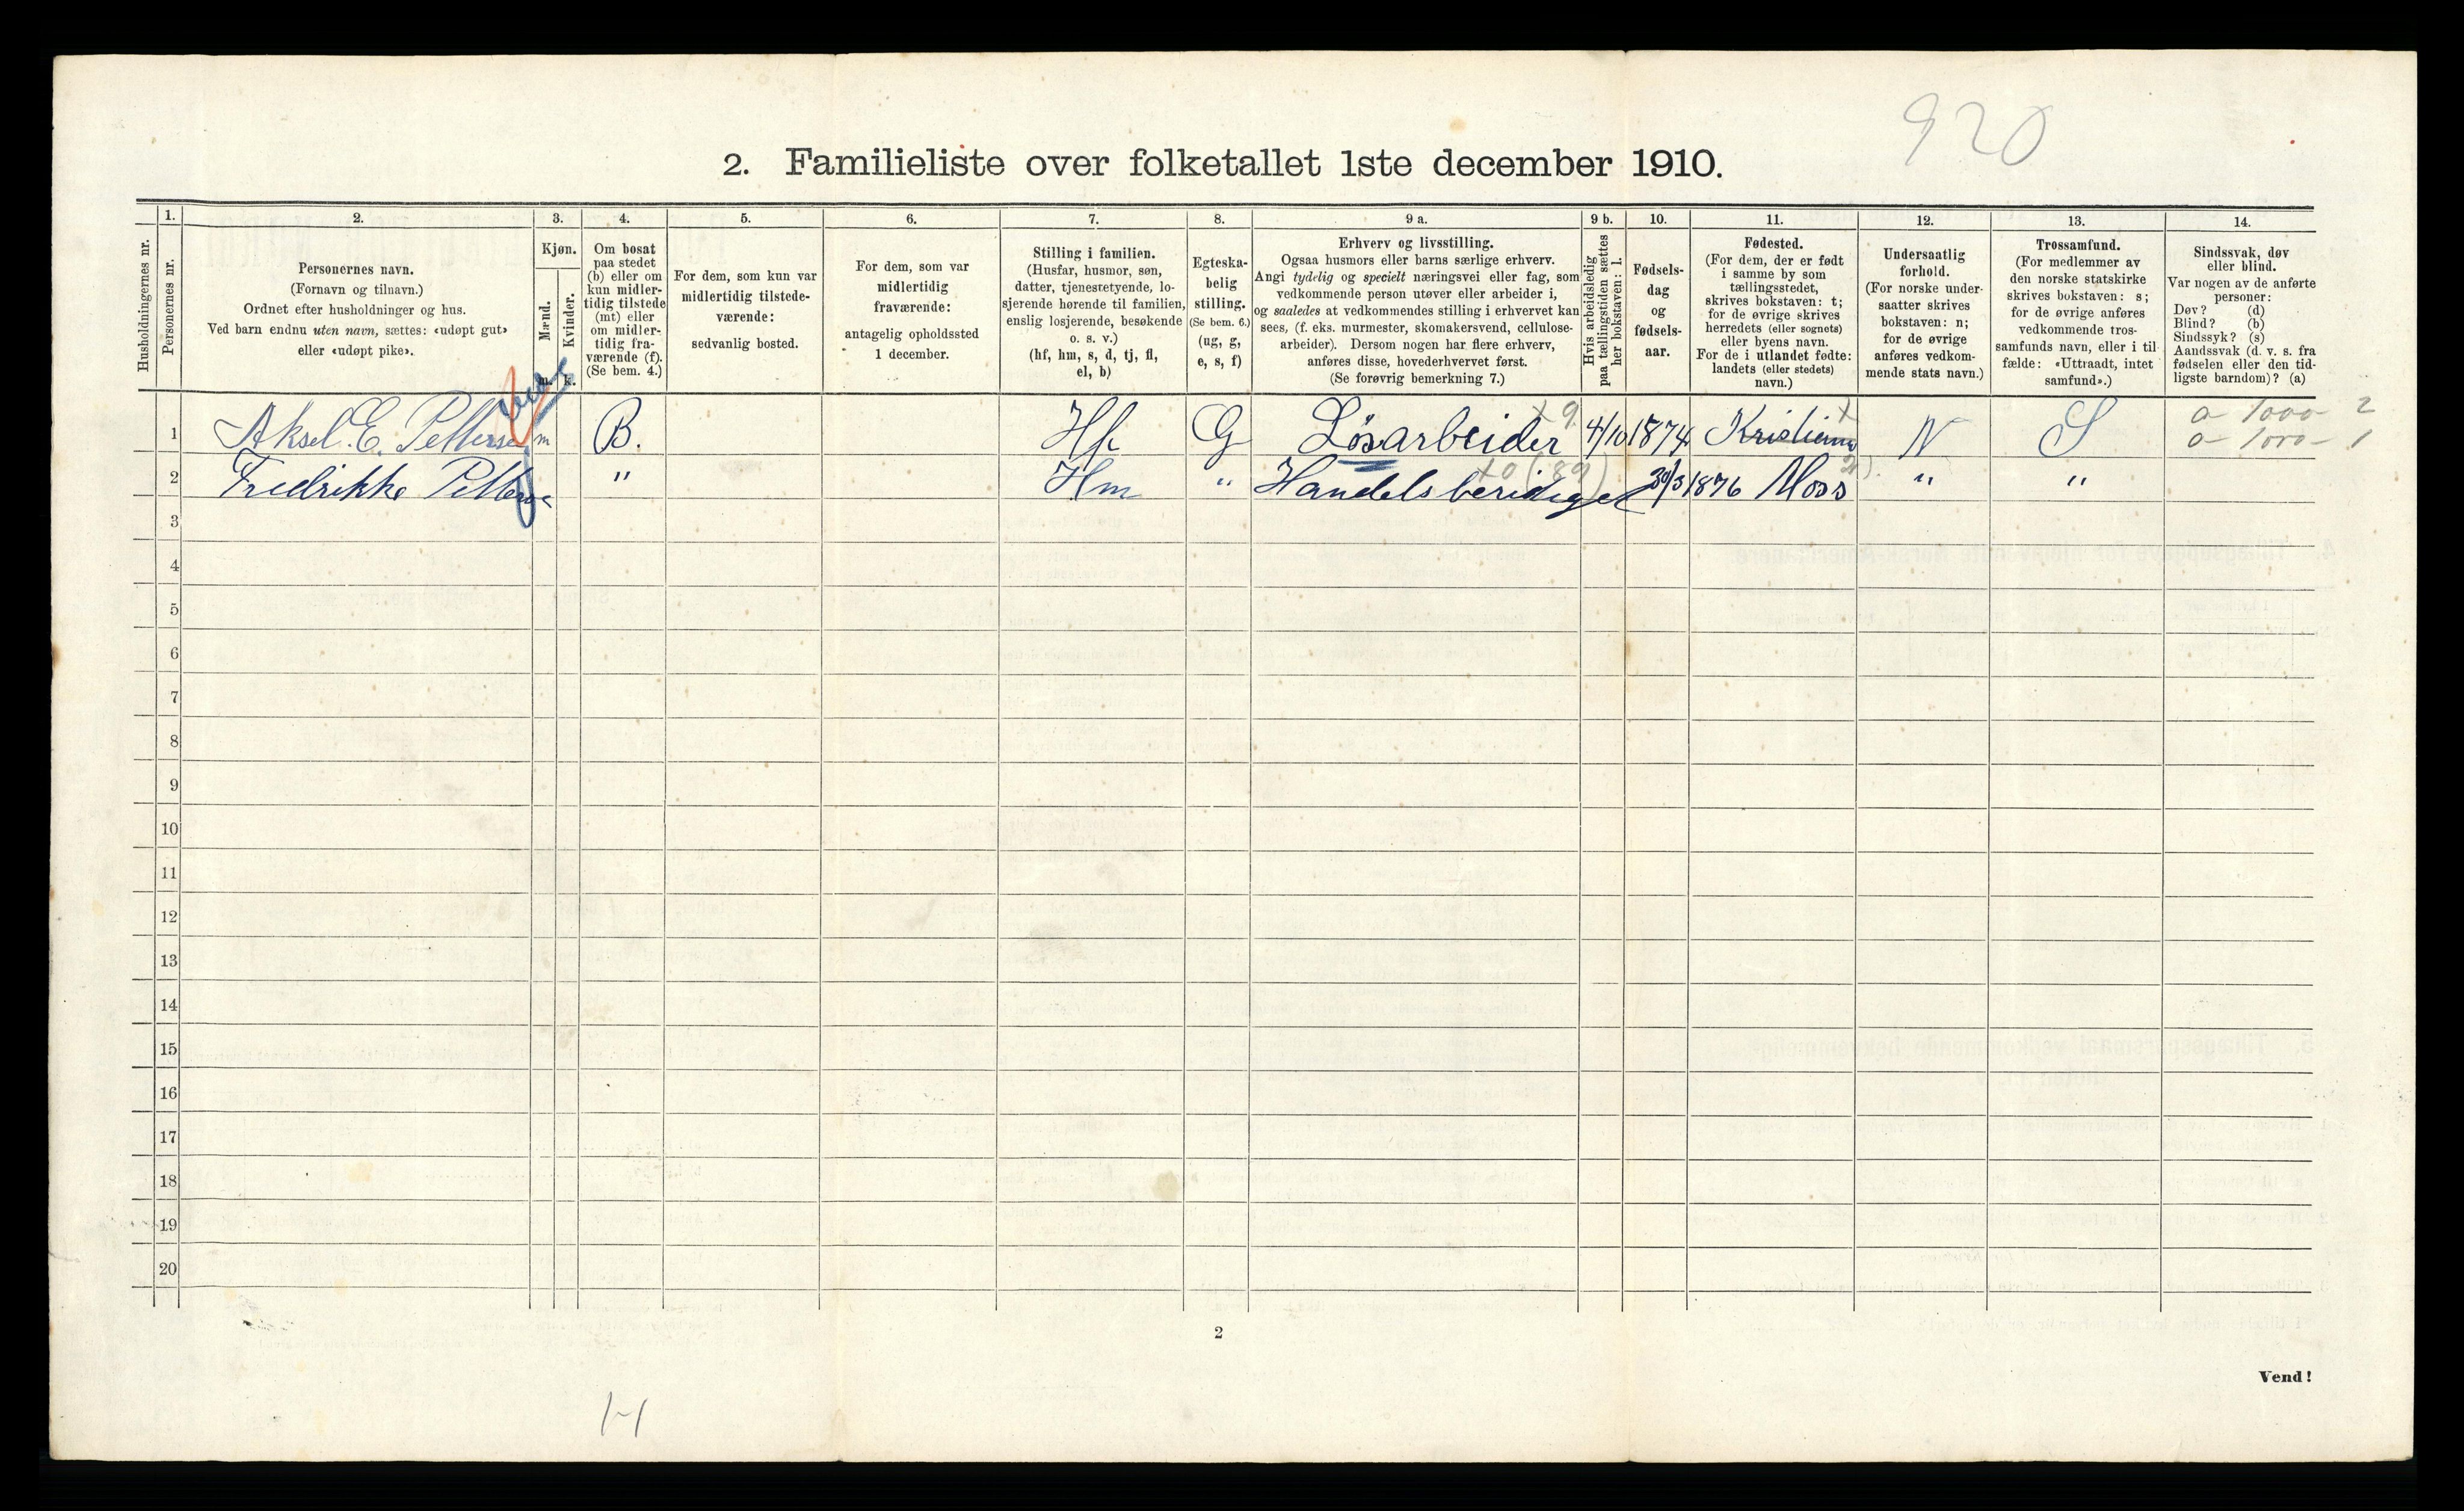 920
2. Familieliste over folketallet 1ste december 1910.
Husholdningernes nr.
1.
Personernes nr.
2.
Personernes navn.
(Fornavn og tilnavn.)
Ordnet efter husholdninger og hus.
Ved barn endnu uten navn, sættes: «udøpt gut»
eller «udøpt pike».
3.
Kjøn.
Mænd.
Kvinder.
m. k.
4.
Om bosat
paa stedet
(b) eller om
kun midler-
tidig tilstede
(mt) eller
om midler-
tidig fra-
værende (f).
(Se bem. 4.)
5.
For dem, som kun var
midlertidig tilstede-
værende:
sedvanlig bosted.
6.
For dem, som var
midlertidig
fraværende:
antagelig opholdssted
1 december.
7.
Stilling i familien.
(Husfar, husmor, søn,
datter, tjenestetyende, lo-
sjerende hørende til familien,
enslig losjerende, besøkende
o. s. v.)
(hf, hm, s, d, tj, fl,
el, b)
8.
Egteska-
belig
stilling.
(Se bem. 6.)
(ug, g,
e, s, f)
9 a.
Erhverv og livsstilling.
Ogsaa husmors eller barns særlige erhverv.
Angi tydelig og specielt næringsvei eller fag, som
vedkommende person utøver eller arbeider i,
og saaledes at vedkommendes stilling i erhvervet kan
sees, (f. eks. murmester, skomakersvend, cellulose-
arbeider). Dersom nogen har flere erhverv,
anføres disse, hovederhvervet først.
(Se forøvrig bemerkning 7.)
9 b.
Hvis arbeidsledig
paa tællingstiden sættes
her bokstaven: l.
10.
Fødsels-
dag
og
fødsels-
aar.
11.
Fødested.
(For dem, der er født
i samme by som
tællingsstedet,
skrives bokstaven: t;
for de øvrige skrives
herredets (eller sognets)
eller byens navn.
For de i utlandet fødte:
landets (eller stedets)
navn.)
12.
Undersaatlig
forhold.
(For norske under-
saatter skrives
bokstaven: n;
for de øvrige
anføres vedkom-
mende stats navn.)
13.
Trossamfund.
(For medlemmer av
den norske statskirke
skrives bokstaven: s;
for de øvrige anføres
vedkommende tros-
samfunds navn, eller i til-
fælde: «Uttraadt, intet
samfund».)
14.
Sindssvak, døv
eller blind.
Var nogen av de anførte
personer:
Døv? (d)
Blind? (b)
Sindssyk? (s)
Aandssvak (d. v. s. fra
fødselen eller den tid-
ligste barndom)? (a)
1 Aksel. E. Pettersen m B. Hf G Løsarbeider 4/10 1874 Kristiania N S 0 - 1000 - 2
0 - 1000 - 1
2 Fredrikke Petterse " Hm " Handelsberidiget 30/3 1876 Moss " "
3
4
5
6
7
8
9
10
11
12
13
14
15
16
17
18
19
20
2
Vend!